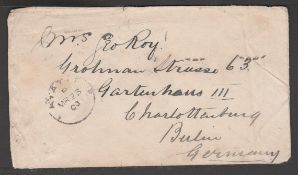 Mrs Geo Roy
Grolman Strasse 63
Gartenhaus III
Charlottenburg
Berlin
Germany
03